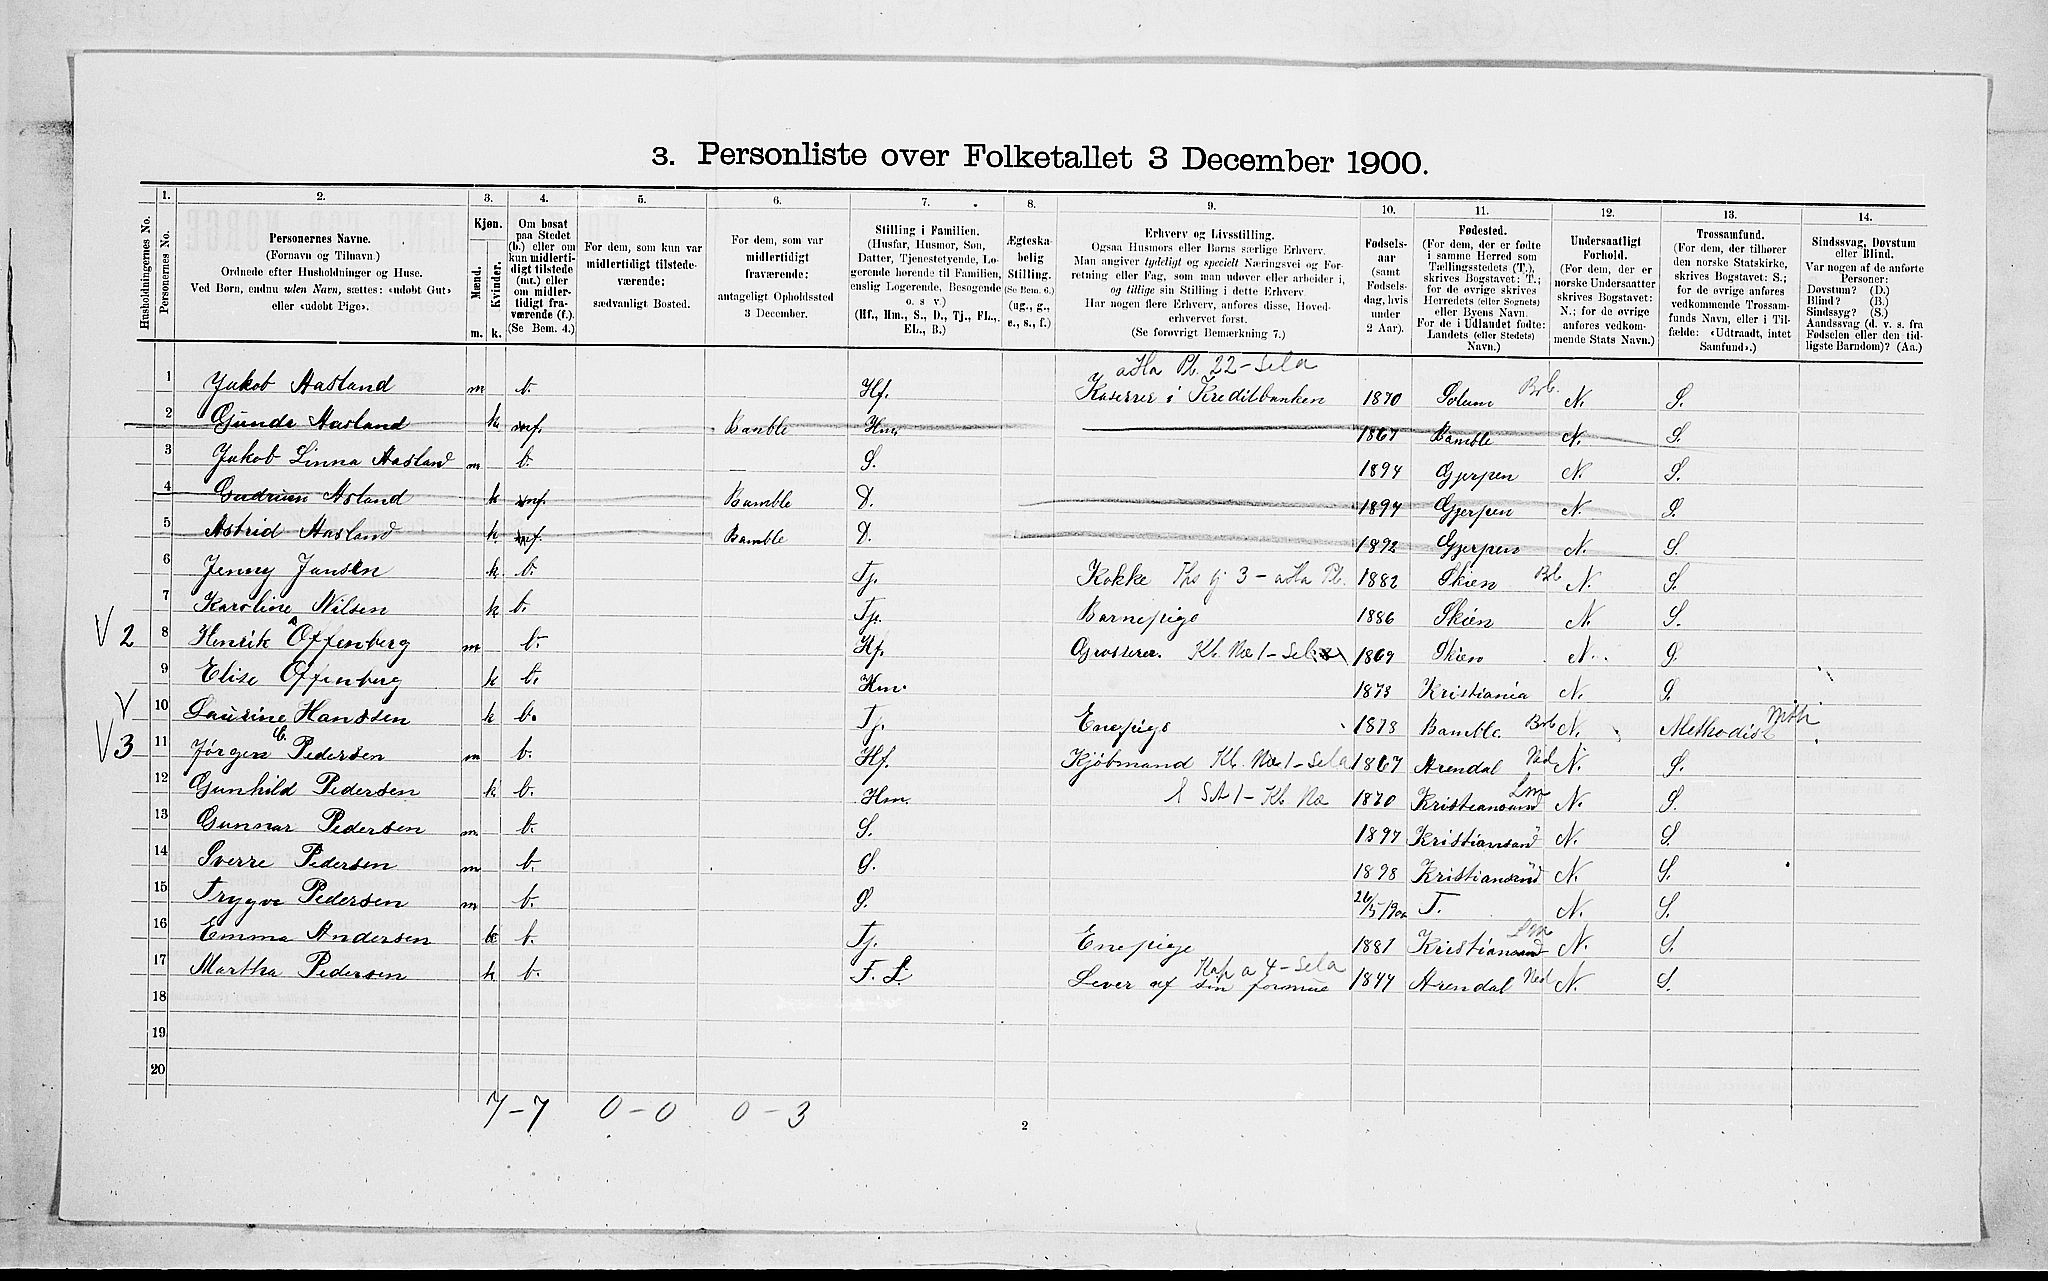 3. Personliste over Folketallet 3 December 1900.
Husholdningernes No.
1. Personernes No.
2. Personernes Navne.
(Fornavn og Tilnavn.)
Ordnede efter Husholdninger og Huse.
Ved Børn, endnu uden Navn, sættes: «udøbt Gut»
eller «udøbt Pige».
3. Kjøn.
Mænd. Kvinder.
m. k.
4. Om bosat
paa Stedet
(b.) eller om
kun midlerti-
digt tilstede
(mt.) eller
om midler-
tidigt fra-
værende (f.).
(Se Bem. 4.)
5. For dem, som kun var
midlertidigt tilstede-
værende:
sædvanligt Bosted.
6. For dem, som var
midlertidigt
fraværende:
antageligt Opholdssted
3 December.
7. Stilling i Familien.
(Husfar, Husmor, Søn,
Datter, Tjenestetyende, Lo-
gerende hørende til Familien,
enslig Logerende, Besøgende
o. s v.)
(Hf., Hm., S., D., Tj., FL.,
EL., B.)
8. Ægteska-
belig
Stilling.
(Se Bem. 6.)
(ug., g.,
e., s., f.)
9. Erhverv og Livsstilling.
Ogsaa Husmors eller Børns særlige Erhverv.
Man angiver tydeligt og specielt Næringsvei og For-
retning eller Fag, som man udøver eller arbeider i,
og tillige sin Stilling i dette Erhverv.
Har nogen flere Erhverv, anføres disse, Hoved-
erhvervet først.
(Se forøvrigt Bemærkning 7.)
10. Fødsels-
aar
(samt
Fødsels-
dag, hvis
under
2 Aar).
11. Fødested.
(For dem, der er fødte
i samme Herred som
Tællingsstedets (T.),
skrives Bogstavet: T.;
for de øvrige skrives
Herredets (eller Sognets)
eller Byens Navn.
For de i Udlandet fødte:
Landets (eller Stedets)
Navn.)
12. Undersaatligt
Forhold.
(For dem, der er
norske Undersaatter
skrives Bogstavet:
N.; for de øvrige
anføres vedkom-
mende Stats Navn.)
13. Trossamfund.
(For dem, der tilhører
den norske Statskirke,
skrives Bogstavet: S.;
for de øvrige anføres
vedkommende Trossam-
funds Navn, eller i Til-
fælde: «Udtraadt, intet
Samfund».)
14. Sindssvag, Døvstum
eller Blind.
Var nogen af de anførte
Personer:
Døvstum? (D.)
Blind? (B.)
Sindssyg? (S.)
Aandssvag (d. v. s. fra
Fødselen eller den tid-
ligste Barndom)? (Aa.)
aHa Pb. 22 - Sela
1 Jakob Aasland m b. Hf. Kaserrer i Kreditbanken 1870 Solum Brb. N. S.
2 Gunda Aasland k f. Bamble Hm. 1867 Bamble N. S.
3 Jakob Linna Aasland m b. S. 1894 Gjerpen N. S.
4 Gudrun Asland k f. Bamble D. 1894 Gjerpen N. S.
5 Astrid Aasland k f. Bamble D. 1892 Gjerpen N. S.
6 Jenny Jansen k b. Tj. Kokke Ths Gj 3 - aHa Pb. 1882 Skien Brb N. S.
7 Karoline Nilsen k b. Tj. Barnepige 1886 Skien N. S.
V 2 8 Henrik A Offenberg m b. Hf. Grosserer. Kb. Næ 1 - Sela 1869 Skien N. S.
9 Elise Offenberg k b. Hm. 1873 Kristiania N. S.
V 10 Laurine Hanssen k b. Tj. Enepige 1873 Bamble Brb N. Methodist Mth
V 3 11 Jørgen C. Pedersen m b. Hf. Kjøbmand Kb. Næ 1 - Sela 1867 Arendal Ned N. S.
12 Gunhild Pedersen k b. Hm. 1 SA 1 - Kb Næ 1870 Kristiansand Lm N. S.
13 Gunnar Pedersen m b. S. 1897 Kristiansand N. S.
14 Sverre Pedersen m b. S. 1898 Kristiansand N. S.
15 Trygve Pedersen m b. S. 26/5 1900 T. N. S.
16 Emma Andersen k b. Tj. Enepige 1881 Kristiansand Lm N. S.
17 Martha Pedersen k b. F. L. Lever af sin formue Kap a 4 - Sela 1844 Arendal Ned N. S.
18
19
20
7 - 7 0 - 0 0 - 3
2